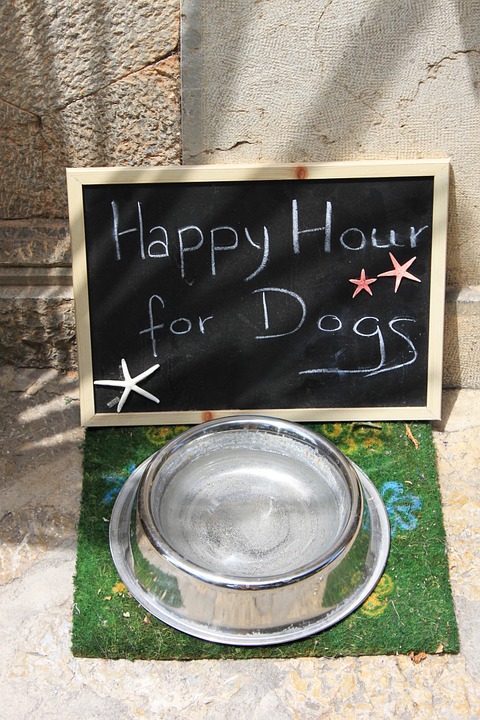 Happy Hour
for Dogs